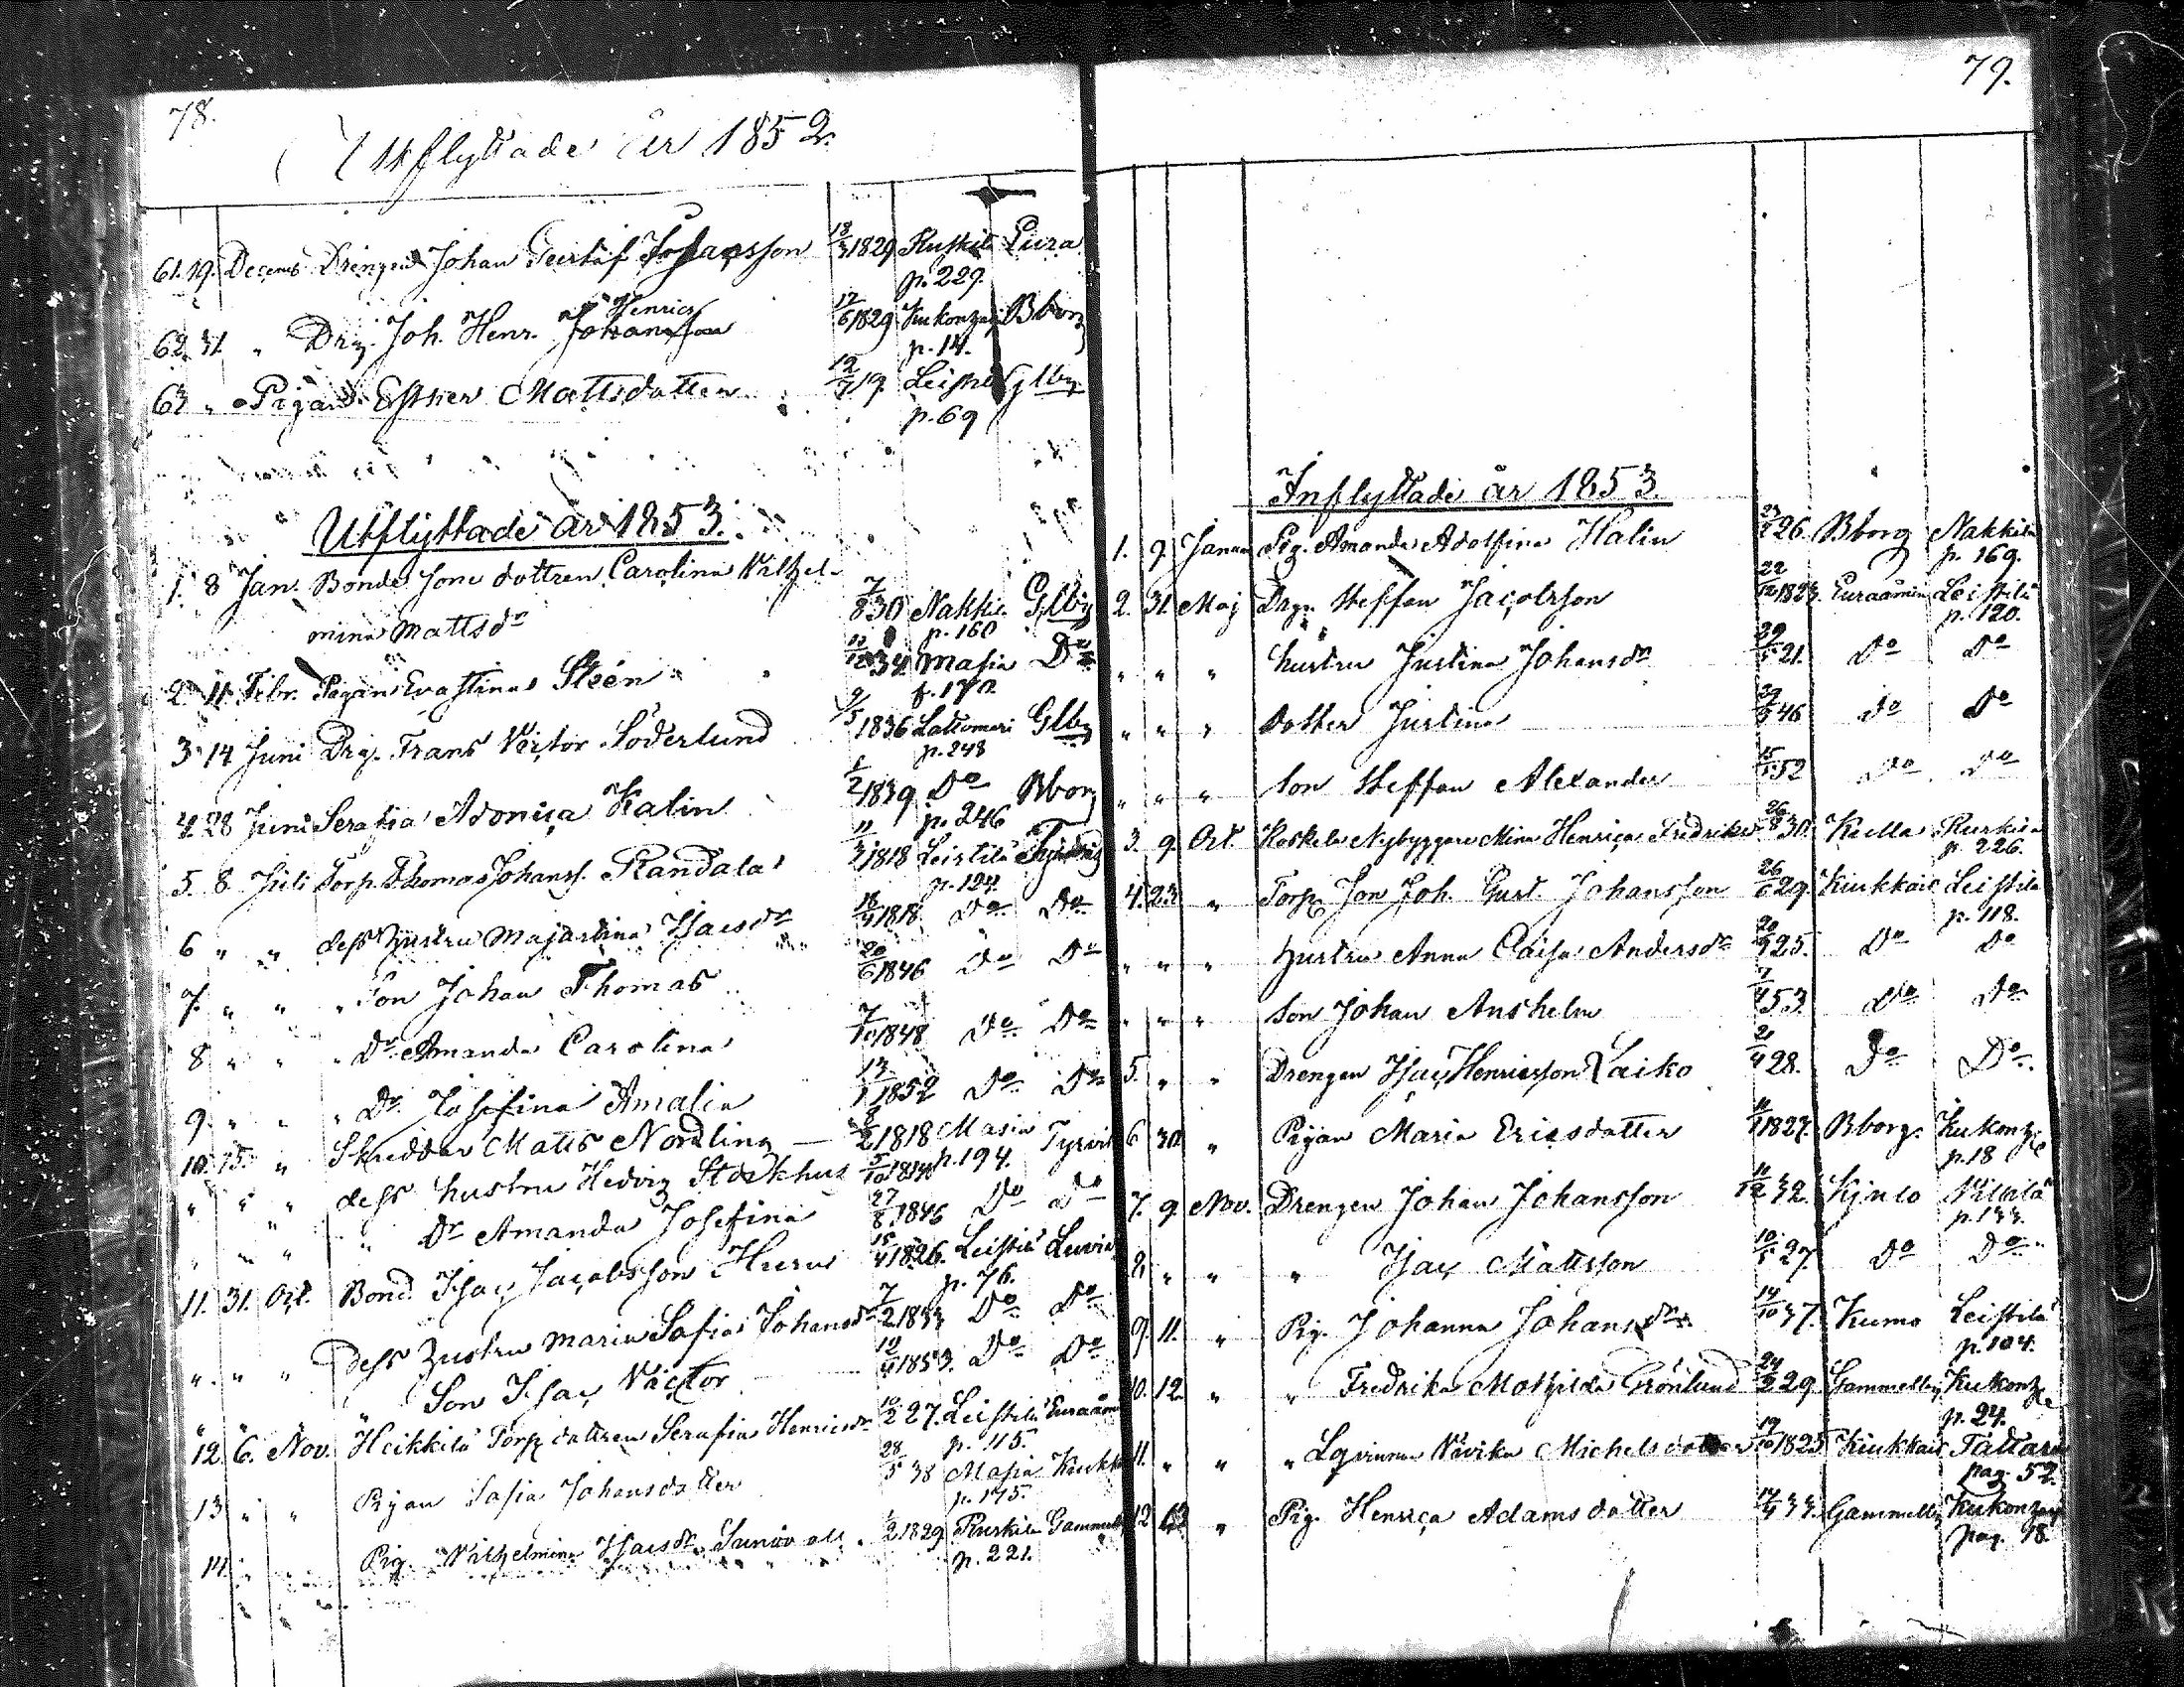 78.
Utflyttade år 1852.
61. 19. Decemb Drengen Johan Gustaf Johansson 18/3 1829 Ruskila Eura
p. 229.
Henrics
62. 31. " Drg. Joh. Henr. Johansson 17/6 1829 Kukonharj Bborg
p. 14.
63 " " Pigan Esther Mattsdotter 19. Leistilä Glby
p. 69
Utflyttade år 1853.
1. 8 Jan. Bonde Sone dottren Carolina Wilhel-
mina Mattsdr 7/8 30 Nakkila Glby
p. 160
2. 11. Febr. Pigan Eva Stina Steen 34. Masia Do
p. 170.
3. 14 Juni Drg. Frans Victor Söderlund 9/5 1836 Lattomeri Glby
p. 248
4. 28 Juni Serafia Adonica Kalin 1/2 1839 Do Bborg
p. 246
5. 8 Juli Torp. Thomas Johanss. Randala 11/3 1818 Leistilä Tyrvis
p. 124.
6 " " dess hustru Maja Stina Isacsdr 18/4 1818 Do Do
7. " " " Son Johan Thomas 20/6 1846 Do Do
8 " " " Dr Amanda Carolina 7/10 1848 Do Do
9. " " " Dr Josefina Amalia 13/1 1852 Do Do
10. 15. " Skräddar Matts Nordling 8/2 1818 Masia Tyrvis
" " " dess hustru Hedvig Stockhus 5/10 1814 p. 194.
" " " " Dr Amanda Josefina 27/8 1846 Do Do
11. 31. Oct. Bond. Isac Jacobsson Huru 15/4 1826. Leistilä Luvia
p. 76.
" " " Dess hustru Maria Sofia Johansdr 7/2 1833 Do Do
" " " " Son Isac Victor 12/4 1853. Do Do
12. 6. Nov. Heikkilä Torp. dottren Serafia Henricsdr 10/2 27. Leistilä Euraåm
p. 115.
13 " " Pigan Sofia Johansdotter 28/5 38 Masia Kiukk
p. 175.
14. " " Pig. Wilhelmina Isacsdr Sunivall 1/2 1829 Ruskila Gammelb
p. 221.
79.
Inflyttade år 1853.
1. 9. Januar Pig. Amanda Adolfina Halin 26. Bborg Nakkila
p. 169.
2. 31. Maj Drgn Steffan Jacobsson 22/12 1823. Euraåminne Leistilä
p. 120.
" " " hustru Justina Johansdr 29/5 21. Do Do
" " " dotter Justina 46 Do Do
" " " son Steffan Alexander 52 Do Do
3. 9. Oct. Koskela Nybyggare Mina Henrica Fredrika 26/8 30. Kiella Ruskila
p. 226.
4. 23. " Torp. Son Joh. Gust. Johansson 26/6 29. Kiukkais Leistilä
p. 118.
" " " hustru Anna Caisa Andersdr 20/9 25. Do Do
" " " son Johan Anshelm 7/4 53. Do Do
5. " " Drengen Isac Henricsson Laiko 21/4 28. Do Do
6 30. " Pigan Maria Ericsdotter 1827. Bborg. Kukonh
p. 18
7. 9. Nov. Drengen Johan Johansson 11/12 32. Kjulo Villilä
p. 133.
8. " " " Isac Mattsson 27. Do Do
9. 11. " Pig. Johanna Johansdr 14/10 37. Kumo Leistilä
p. 104.
10. 12. " " Fredrika Mathilda Grönlund 24/2 29. Gammelby Kukonh
p. 24.
11. " " " Lqvinnan Wävika Michelsdotter 19/10 1825 Kiukkais Tattara
pag. 52.
12 13 " Pig. Henrica Adamsdotter 33. Gammelby Kukonharj
pag. 18.